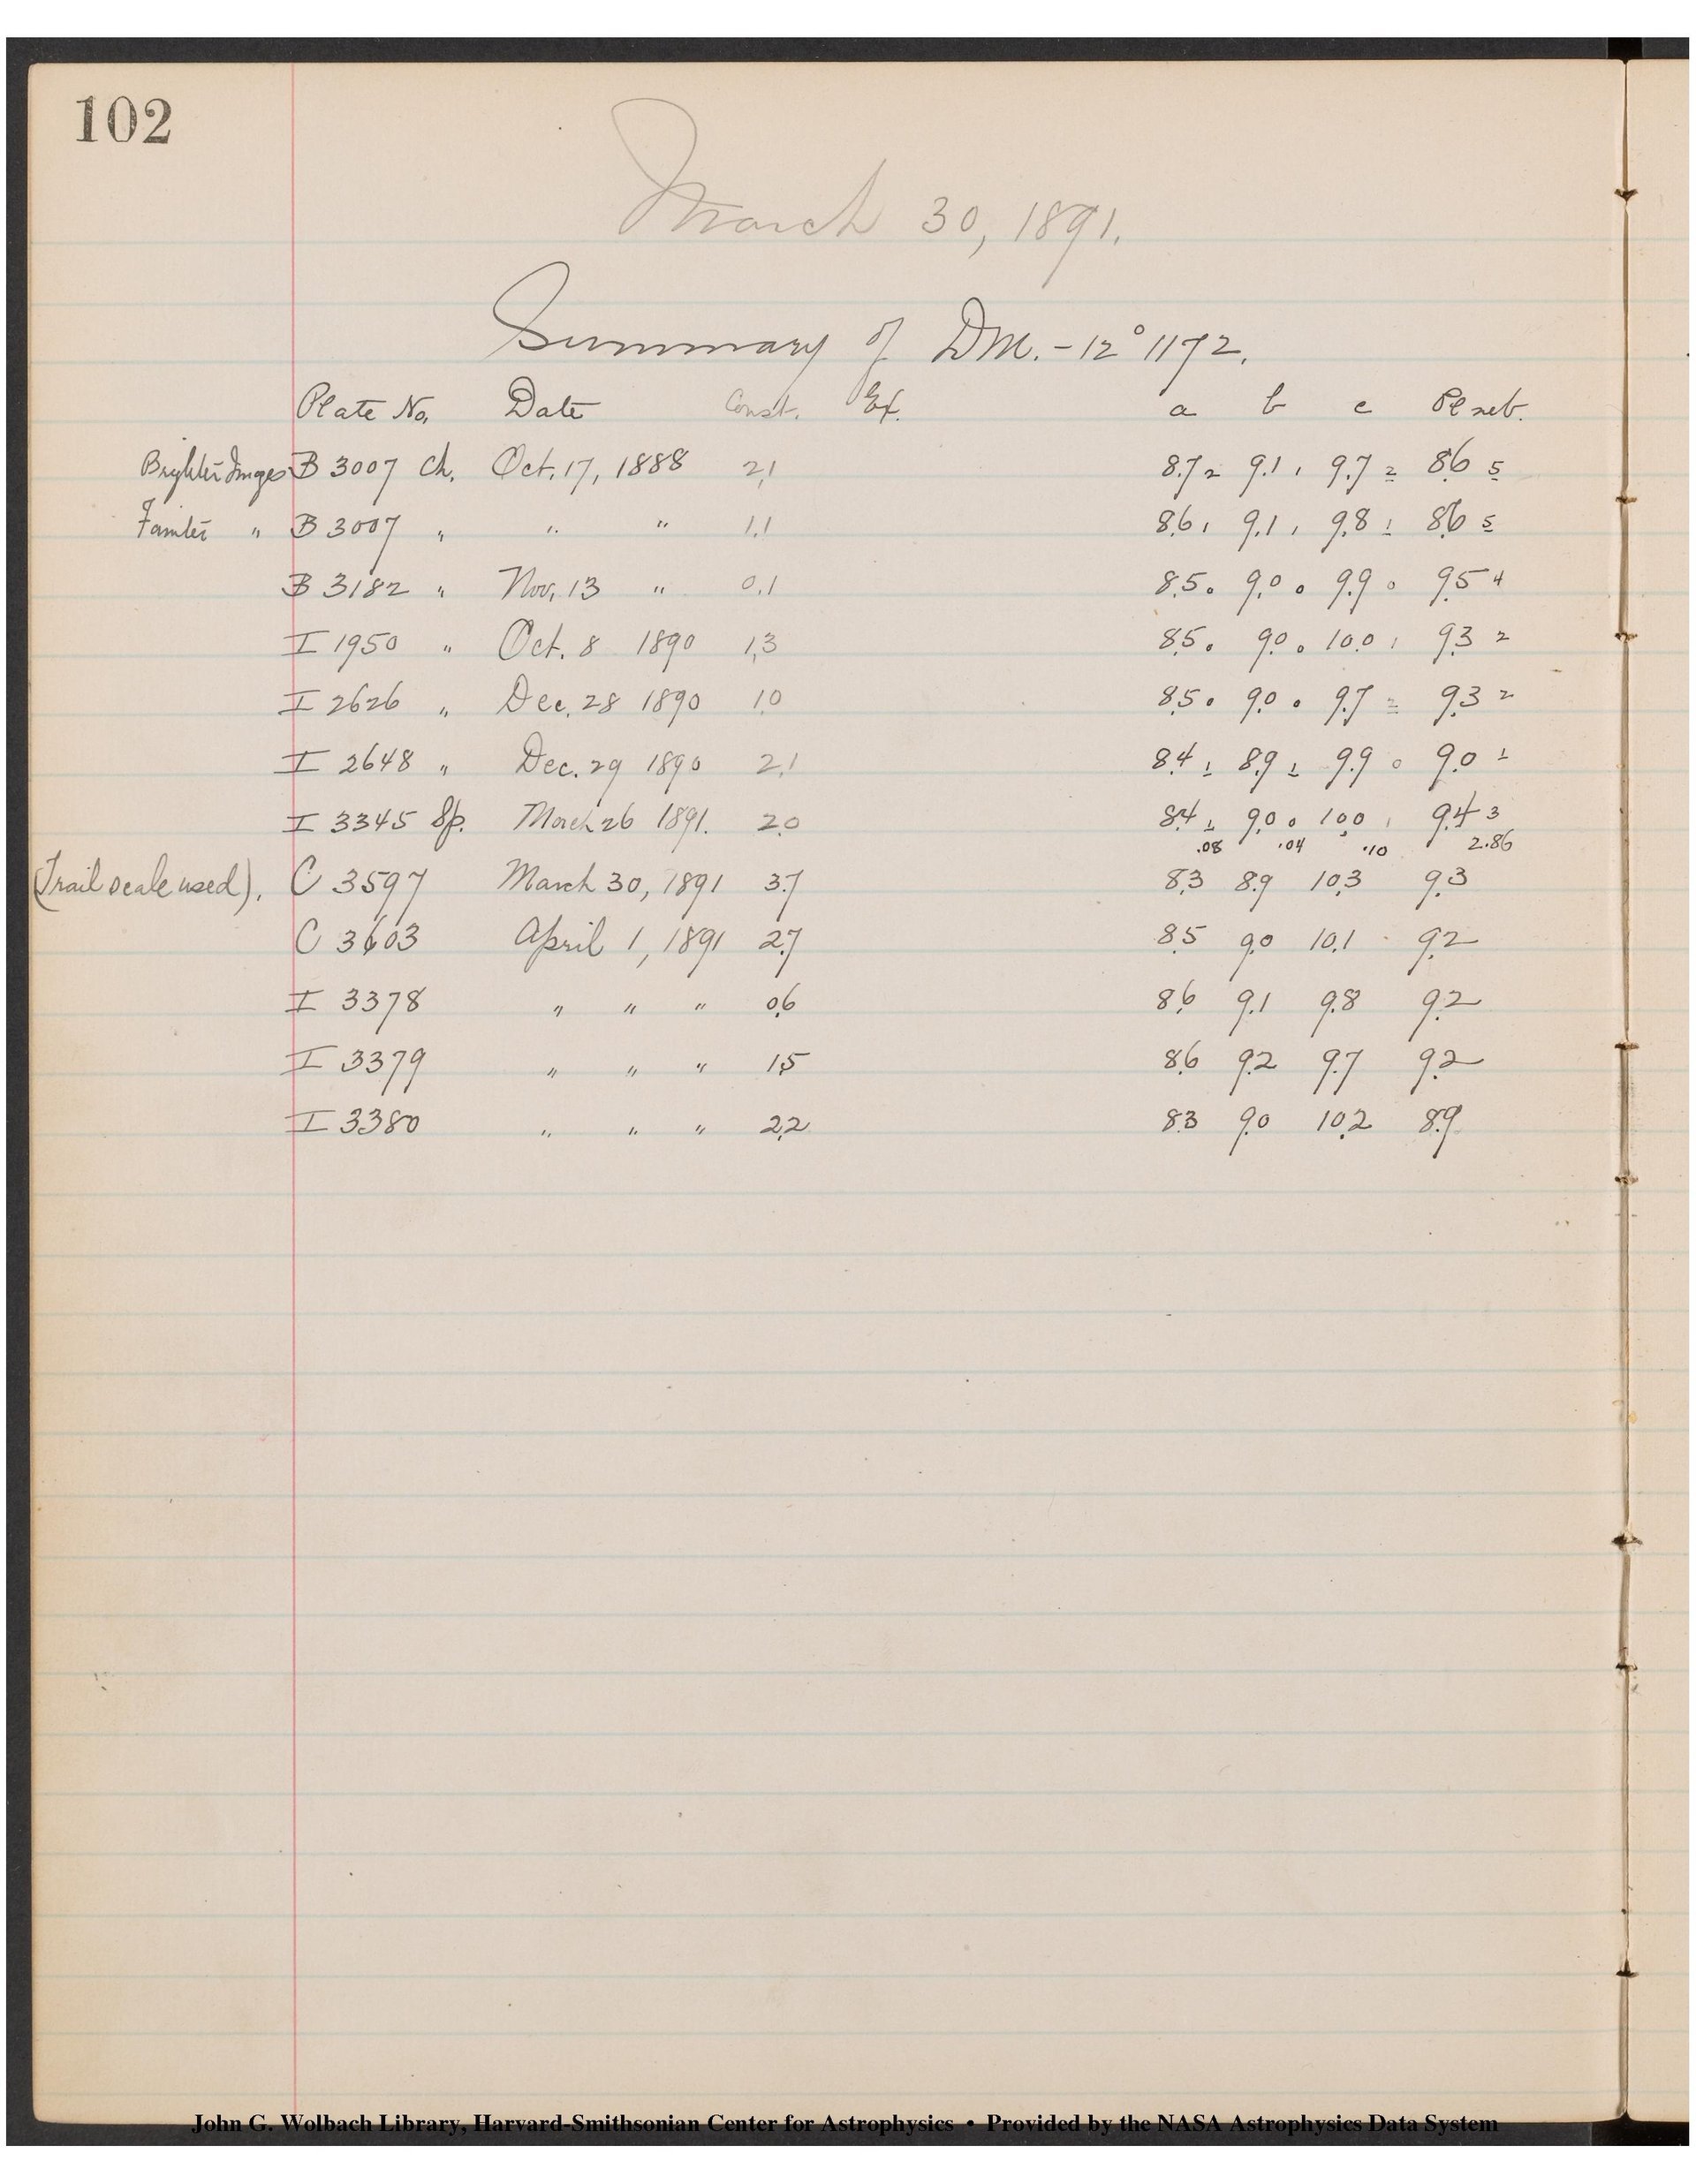 102
March 30, 1891.
Summary of DM. -12° 1172.
Plate No. Date Const. Ex. a b c Pl neb.
Brighter Images B 3007 Ch. Oct. 17, 1888 2,1 8.7 2 9.1 1 9.7 2 8.6 5
Fainter " B 3007 " " " 1.1 8.6 1 9.1 1 9.8 1 8.6 5
B 3182 " Nov. 13 " 0.1 8.5 0 9.0 0 9.9 0 9.5 4
I 1950 " Oct. 8 1890 1,3 8.5 0 9.0 0 10.0 1 9.3 2
I 2626 " Dec. 28 1890 1.0 8.5 0 9.0 0 9.7 2 9.3 2
I 2648 " Dec. 29 1890 2,1 8.4 1 8.9 1 9.9 0 9.0 1
I 3345 Sp. March 26 1891. 2.0 8.4 1 9.0 0 10.0 1 9.4 3
.08 .04 .10 2.86
(Trail scale used). C 3597 March 30, 1891 3.7 8.3 8.9 10.3 9.3
C 3603 April 1, 1891 2.7 8.5 9.0 10.1 9.2
I 3378 " " " 0.6 8.6 9.1 9.8 9.2
I 3379 " " " 1.5 8.6 9.2 9.7 9.2
I 3380 " " " 2.2 8.3 9.0 10.2 8.9
John G. Wolbach Library, Harvard-Smithsonian Center for Astrophysics • Provided by the NASA Astrophysics Data System